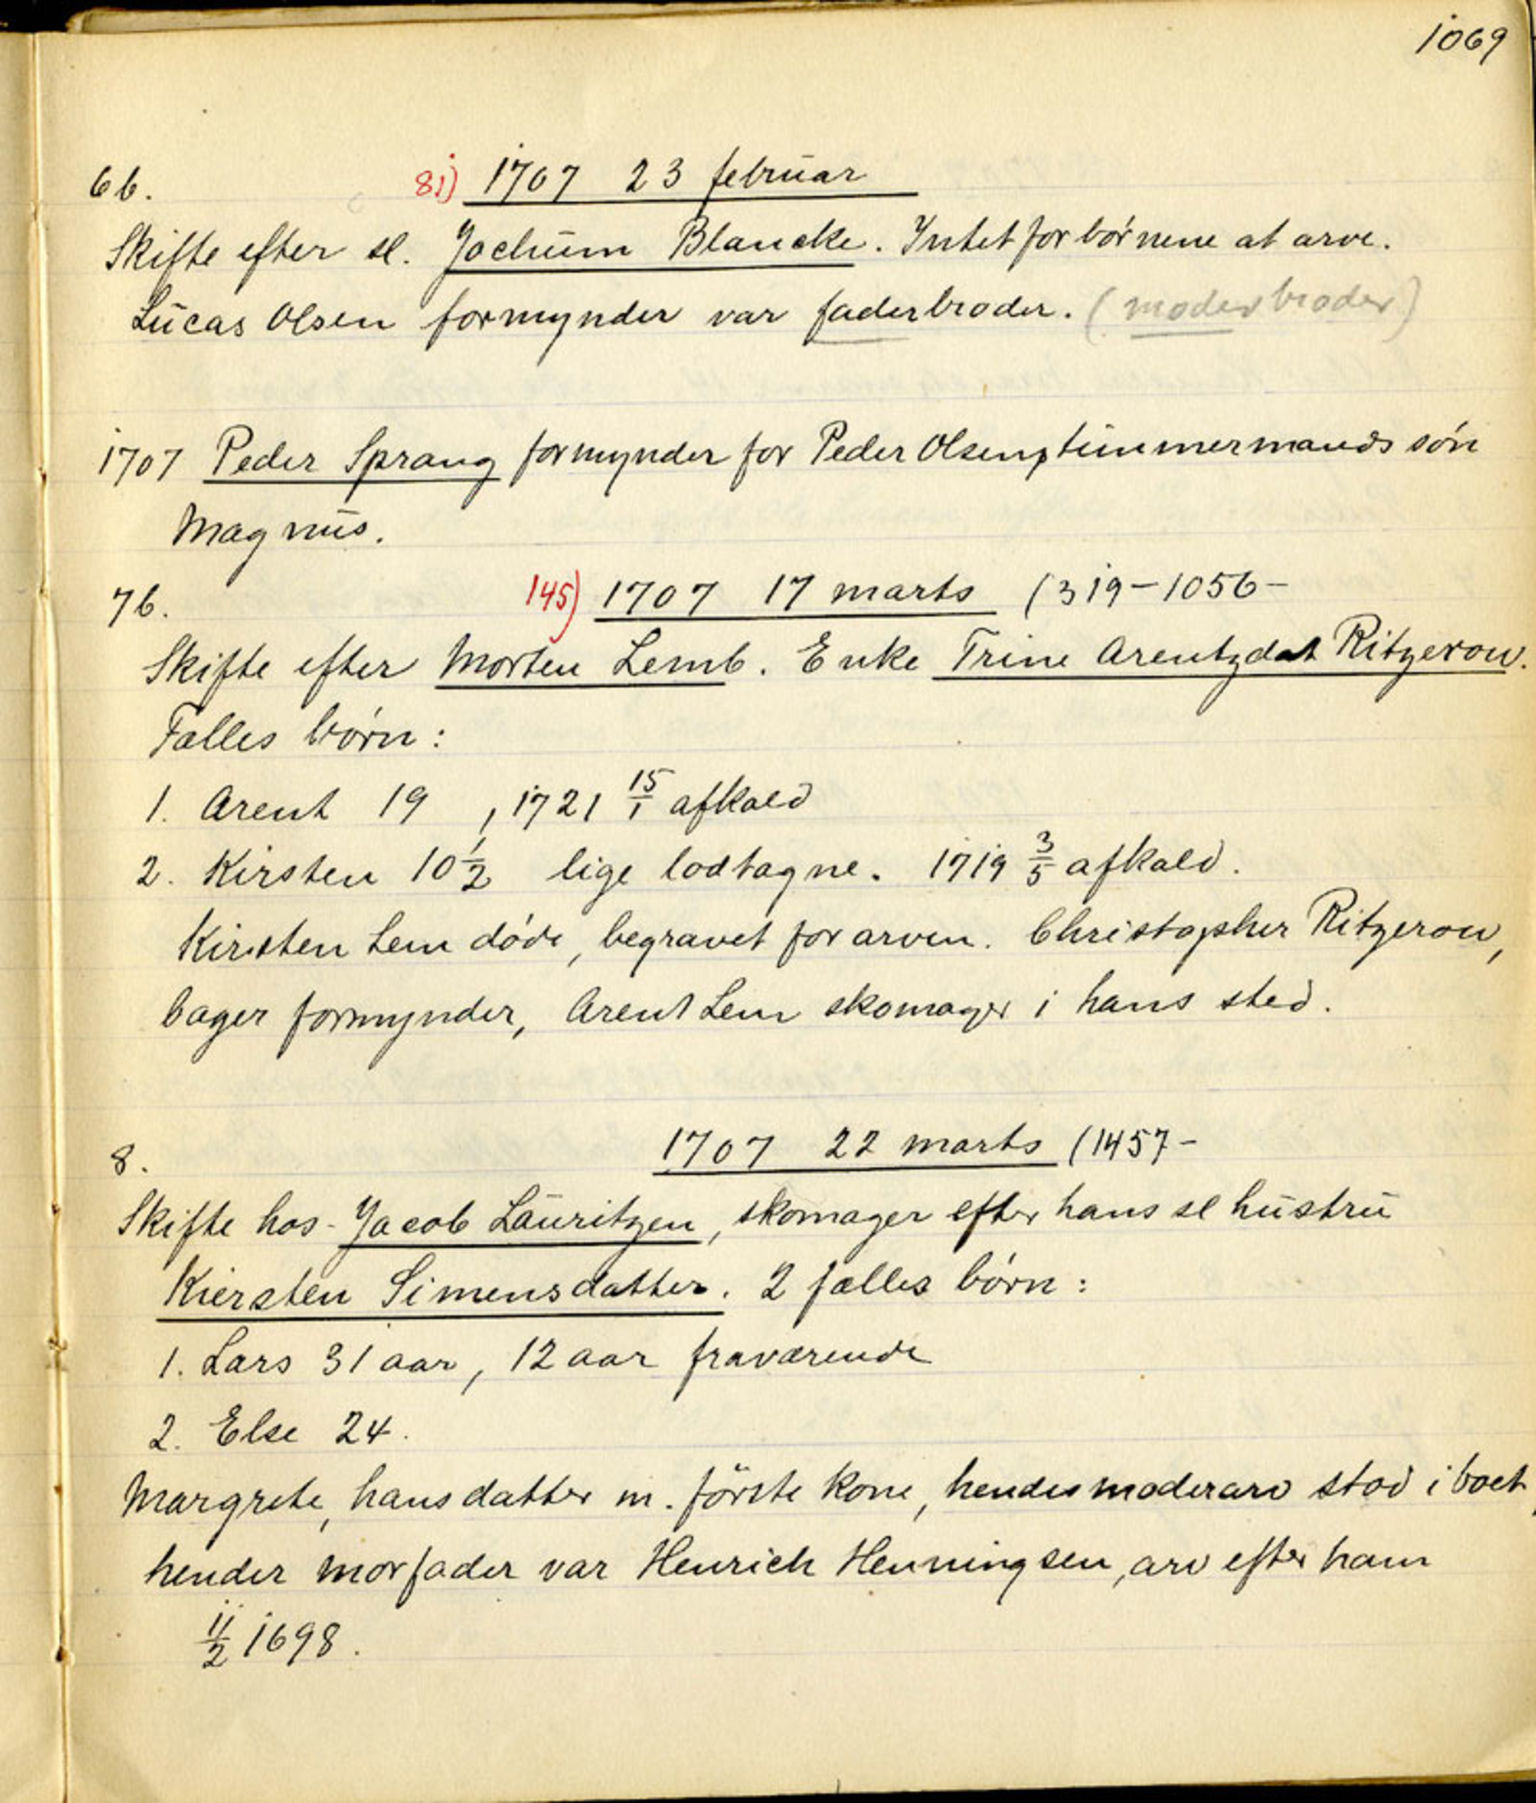 1069
6b. 81) 1707 23 februar
Skifte efter sl. Jochum Blancke. Intet for børnene at arve.
Lucas Olsen formynder var faderbroder. (moderbroder)
1707 Peder Sprang formynder for Peder Olsens tümmermands søn
Magnus.
7b. 145) 1707 17 marts (319-1056-
Skifte efter Morten Lemb. Enke Trine Arentzdat Ritzerow.
Fælles børn:
1. Arent 19 , 1721 15/1 afkald
2. Kirsten 10 1/2 lige lodtagne. 1719 3/5 afkald.
Kirsten Lem døde, begravet for arven. Christopher Ritzerow,
bager formynder, Arent Lem skomager i hans sted.
8. 1707 22 marts (1457-
Skifte hos Jacob Lauritzen, skomager efter hans sl hustru
Kiersten Simensdatter. 2 fælles børn:
1. Lars 31 aar, 12 aar fraværende
2. Else 24.
Margrete, hans datter m. förste kone, hendes moderarv stod i boet,
hendes morfader var Henrich Henningsen, arv efter ham
11/2 1698.